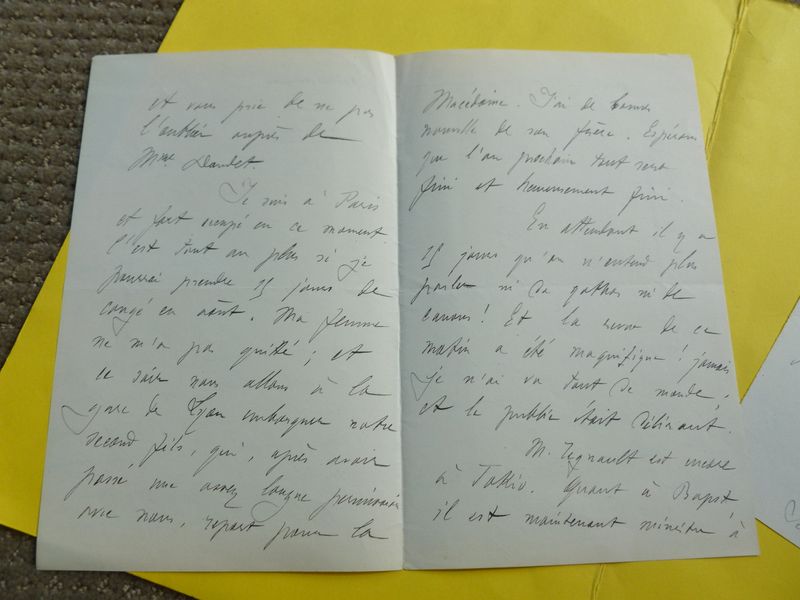 et vous prie de ne pas
l'oublier auprès de
Mme Daudet.
Je suis à Paris
et fort occupé en ce moment.
C'est tout au plus si je
pourrai prendre 15 jours de
congé en août. Ma femme
ne m'a pas quitté ; et
ce soir nous allons à la
gare de Lyon embarquer notre
second fils, qui, après avoir
passé une assez longue permission
avec nous, repart pour la
Macédoine. J'ai de bonnes
nouvelles de son frère. Espérons
que l'an prochain tout sera
fini et heureusement fini.
En attendant il y a
15 jours qu'on n'entend plus
parler ni de gothas ni de
canons ! Et la revue de ce
matin a été magnifique : jamais
je n'ai vu tant de monde,
et le public était délirant.
M. Regnault est encore
à Tokio. Quant à Bapst
il est maintenant ministre à